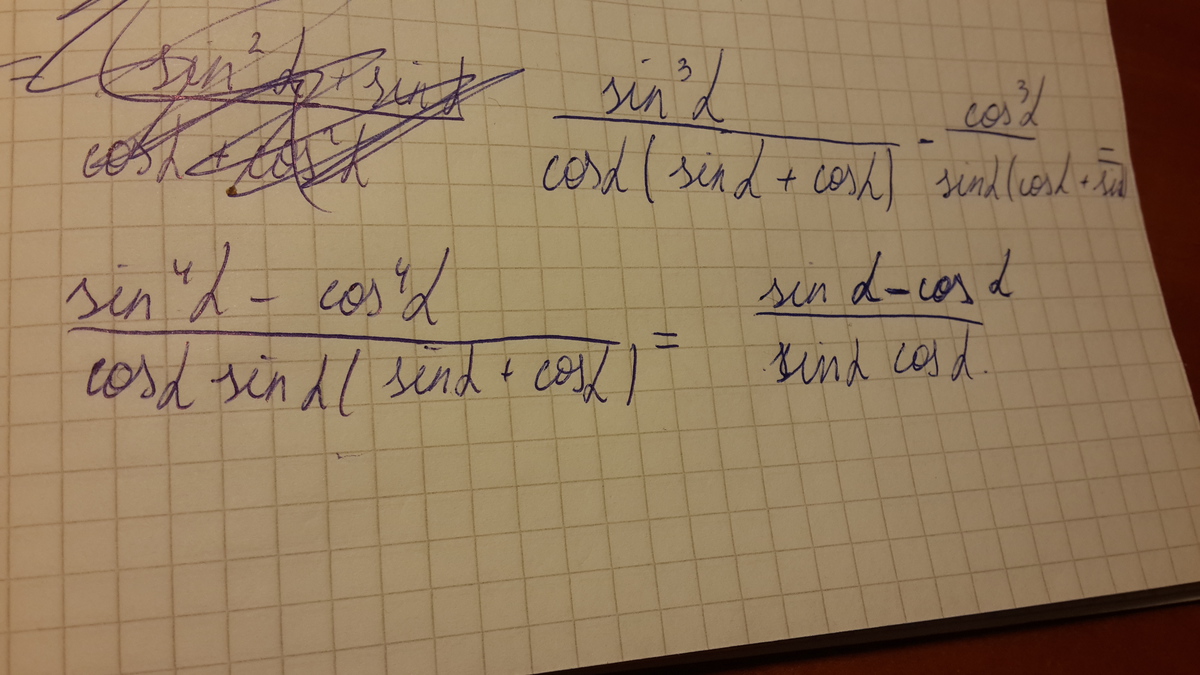 = sin² α + sin α
cos α + cos² α
sin³ α / cos α ( sin α + cos α ) - cos³ α / sin α ( cos α + sin α ) =
sin⁴ α - cos⁴ α / cos α sin α ( sin α + cos α ) = sin α - cos α / sin α cos α .